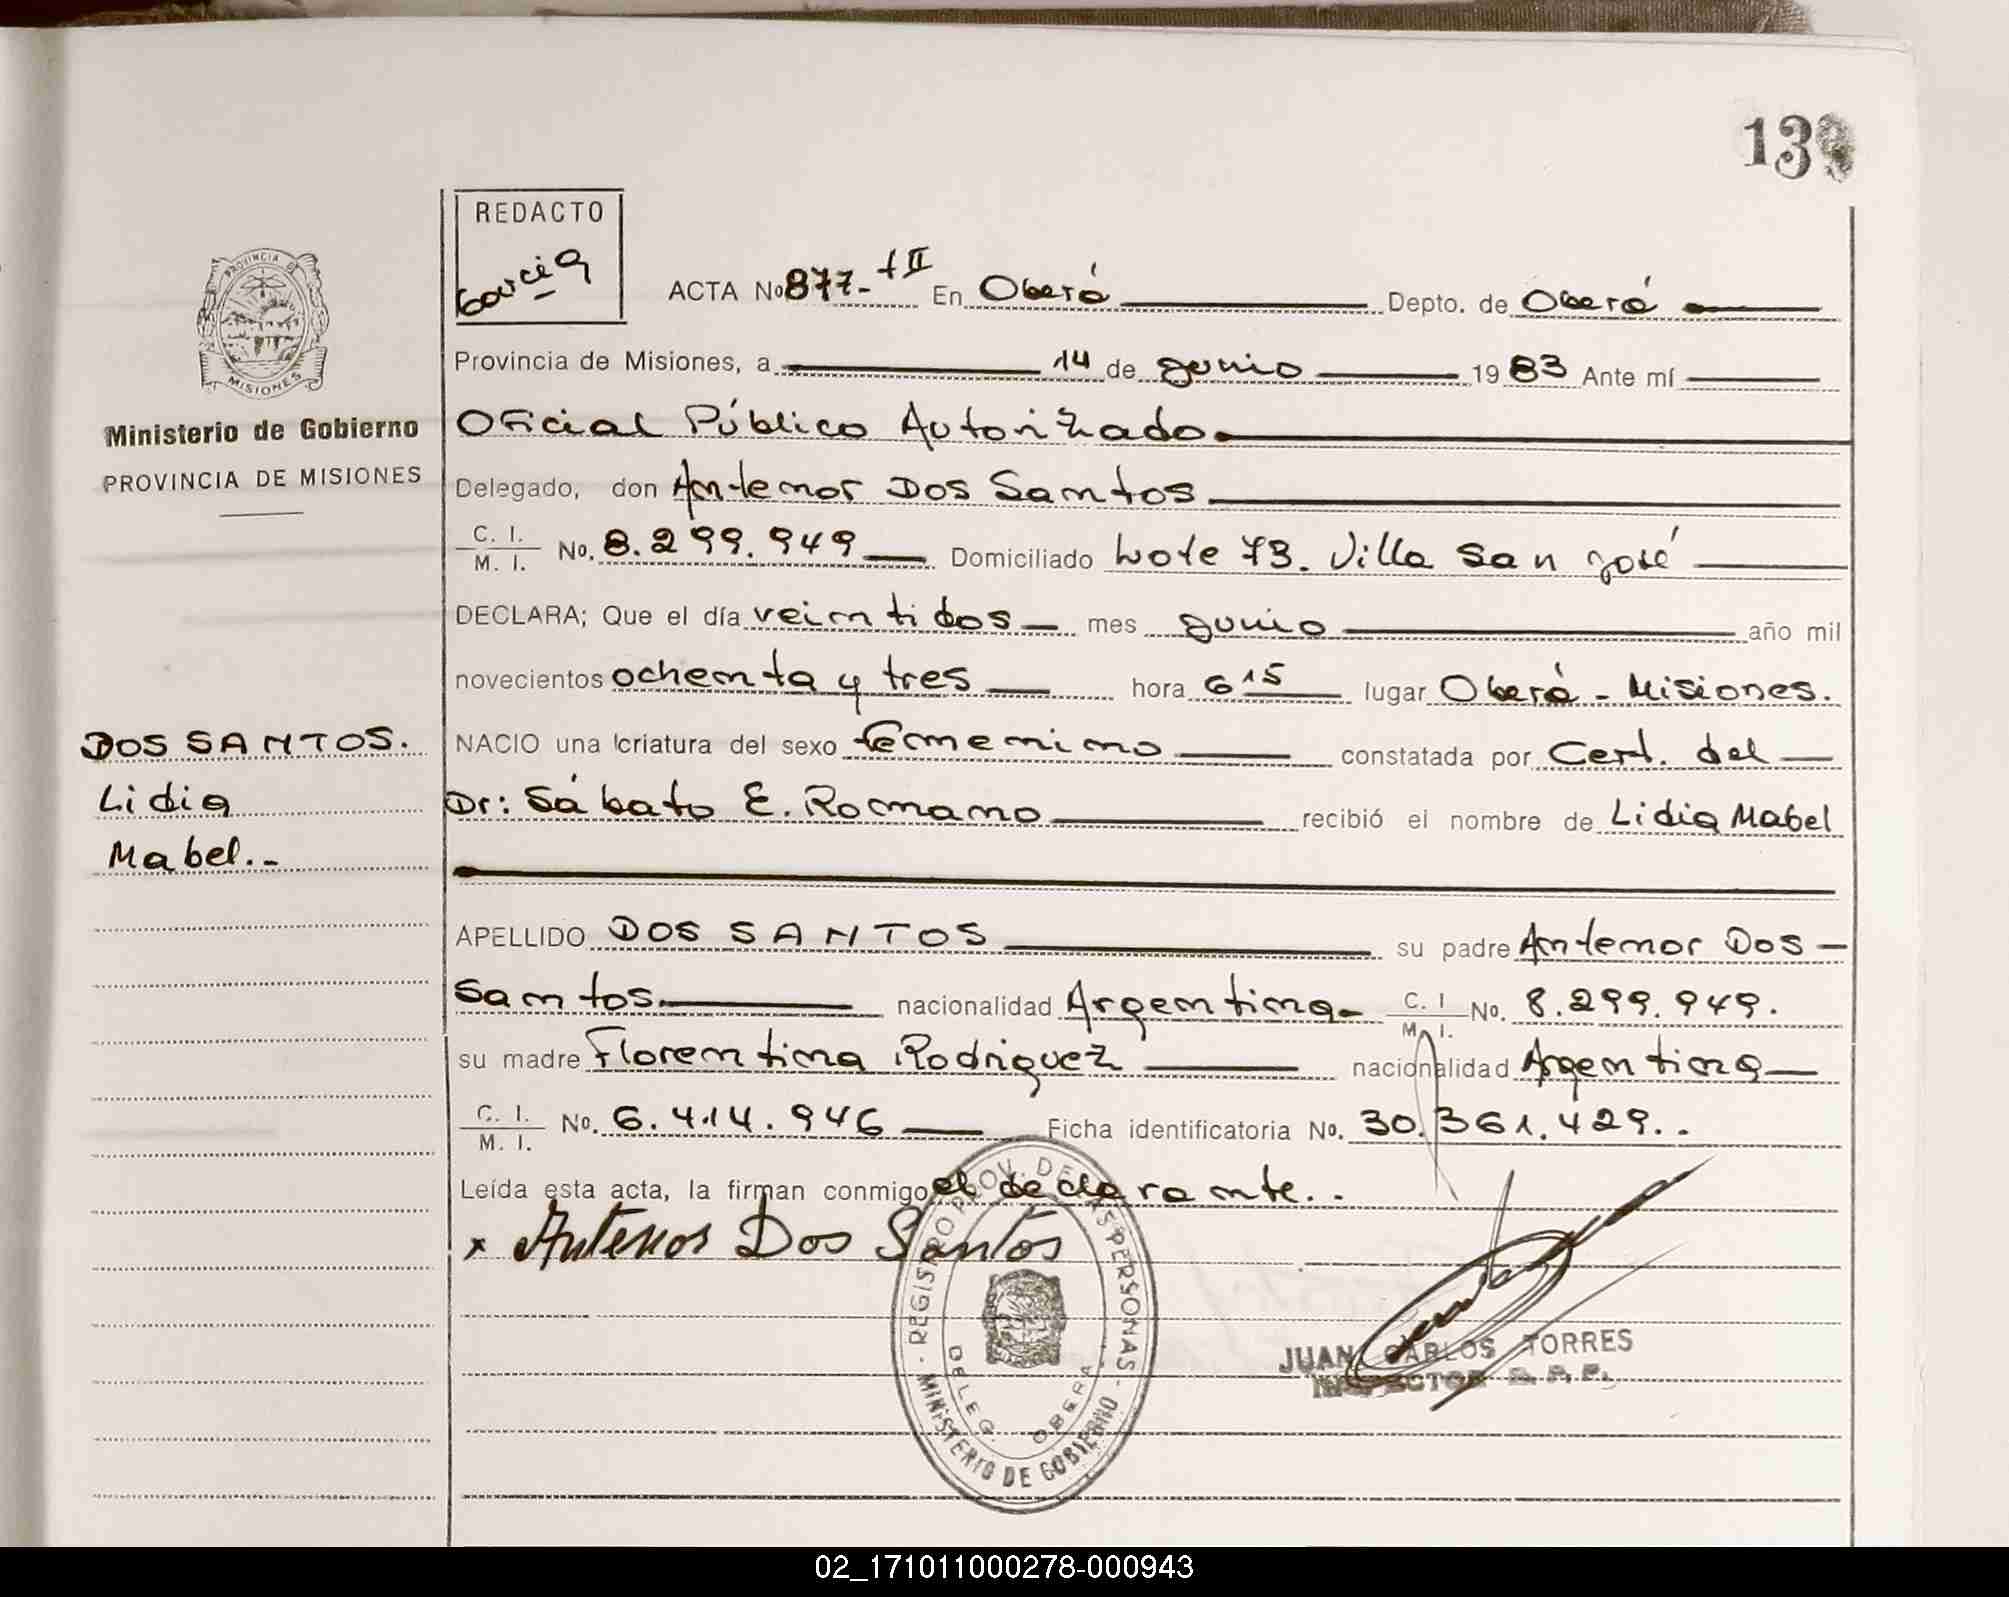 13
REDACTO
Garcia
ACTA No 877- tII En Oberá Depto. de Oberá
PROVINCIA DE
MISIONES
Provincia de Misiones, a 14 de Junio 1983 Ante mí
Ministerio de Gobierno
Oficial Público Autorizado
PROVINCIA DE MISIONES
Delegado, don Antenor Dos Santos
C. I.
M. I.
No. 8.299.949 Domiciliado Lote 73. Villa San José
DECLARA; Que el día veintidos mes Junio año mil
novecientos ochenta y tres hora 6 15 lugar Oberá - Misiones.
DOS SANTOS.
Lidia
Mabel.-
NACIO una criatura del sexo femenino constatada por Cert. del
Dr: Sábato E. Romano recibió el nombre de Lidia Mabel
APELLIDO DOS SANTOS su padre Antenor Dos
Santos nacionalidad Argentina C. I. M. I. No. 8.299.949.
su madre Florentina Rodriguez nacionalidad Argentina
C. I.
M. I.
No. 6.414.946 Ficha identificatoria No. 30.361.429..
Leída esta acta, la firman conmigo el declarante..
x Antenor Dos Santos
REGISTRO PROV. DE LAS PERSONAS - MINISTERIO DE GOBIERNO -
DELEG. OBERA
JUAN CARLOS TORRES
INSPECTOR R. P. P.
02_171011000278-000943